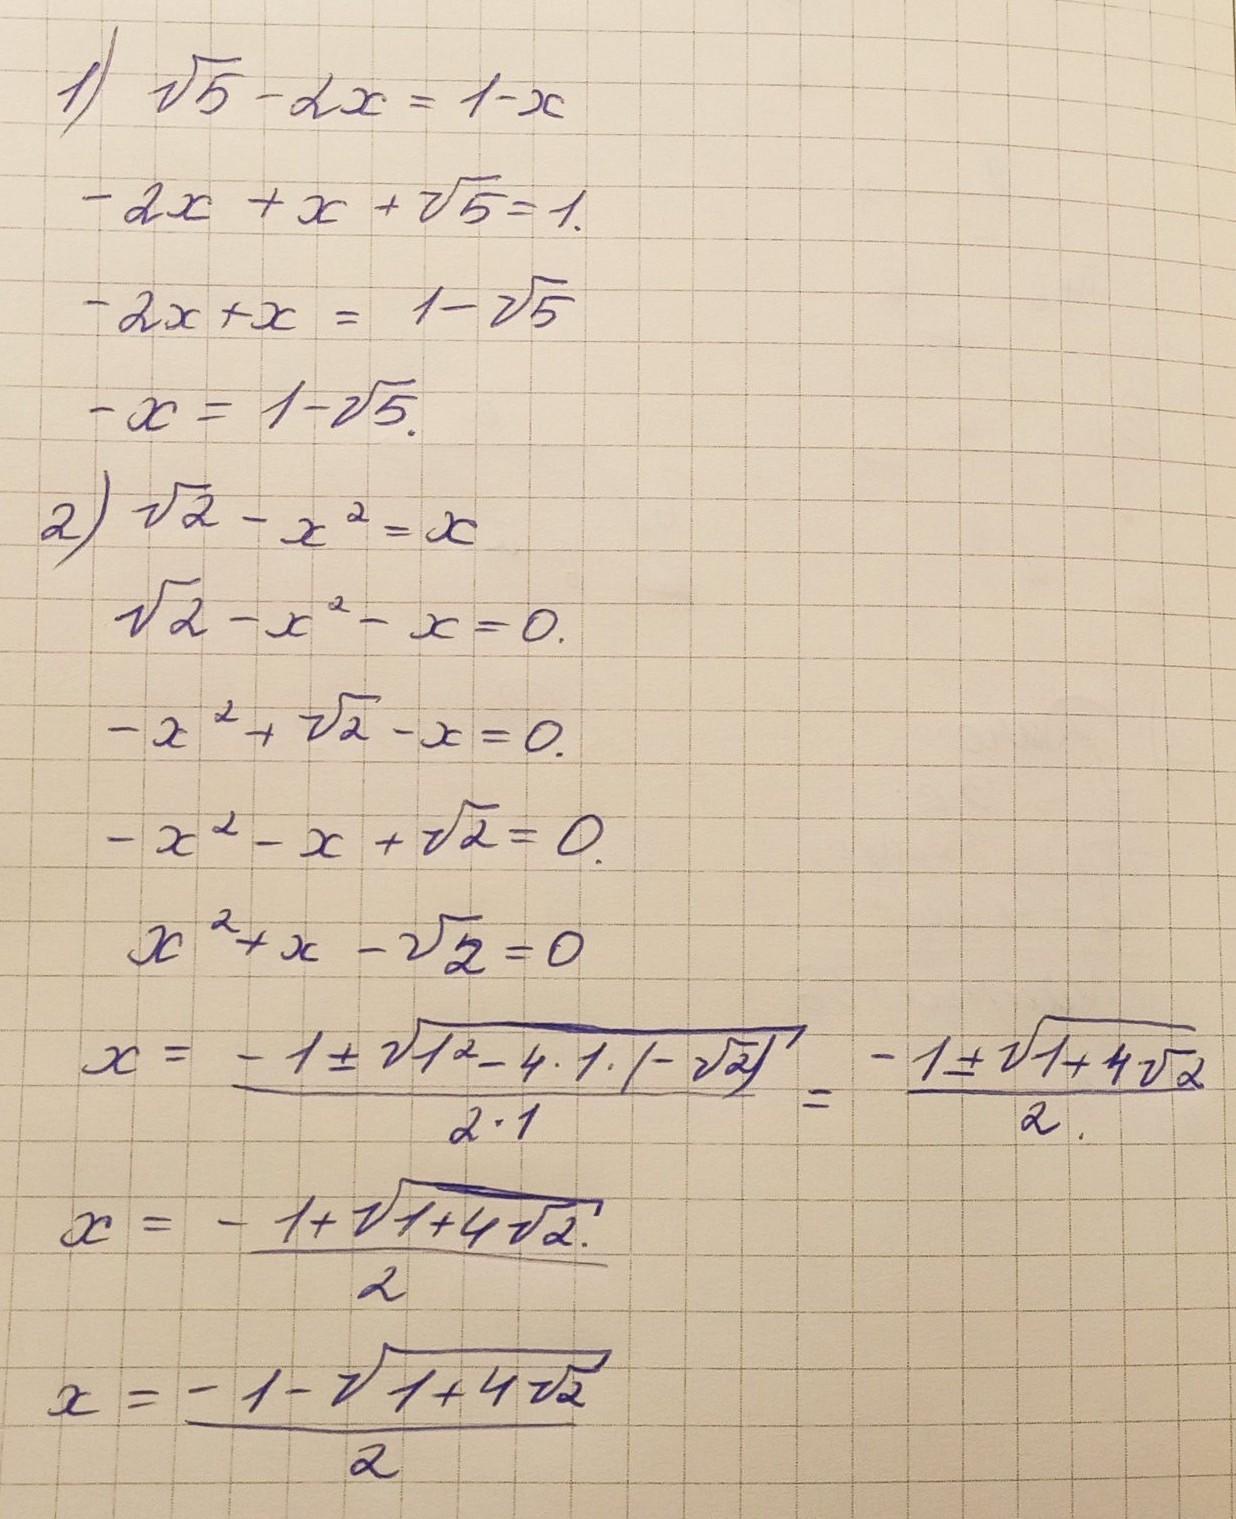 1) √5 - 2x = 1 - x
-2x + x + √5 = 1.
-2x + x = 1 - √5
-x = 1 - √5.
2) √2 - x² = x
√2 - x² - x = 0.
-x² + √2 - x = 0.
-x² - x + √2 = 0.
x² + x - √2 = 0
x = (-1 ± √(1² - 4·1·(-√2)))/(2·1) = (-1 ± √(1 + 4√2))/2.
x = (-1 + √(1 + 4√2.))/2
x = (-1 - √(1 + 4√2))/2